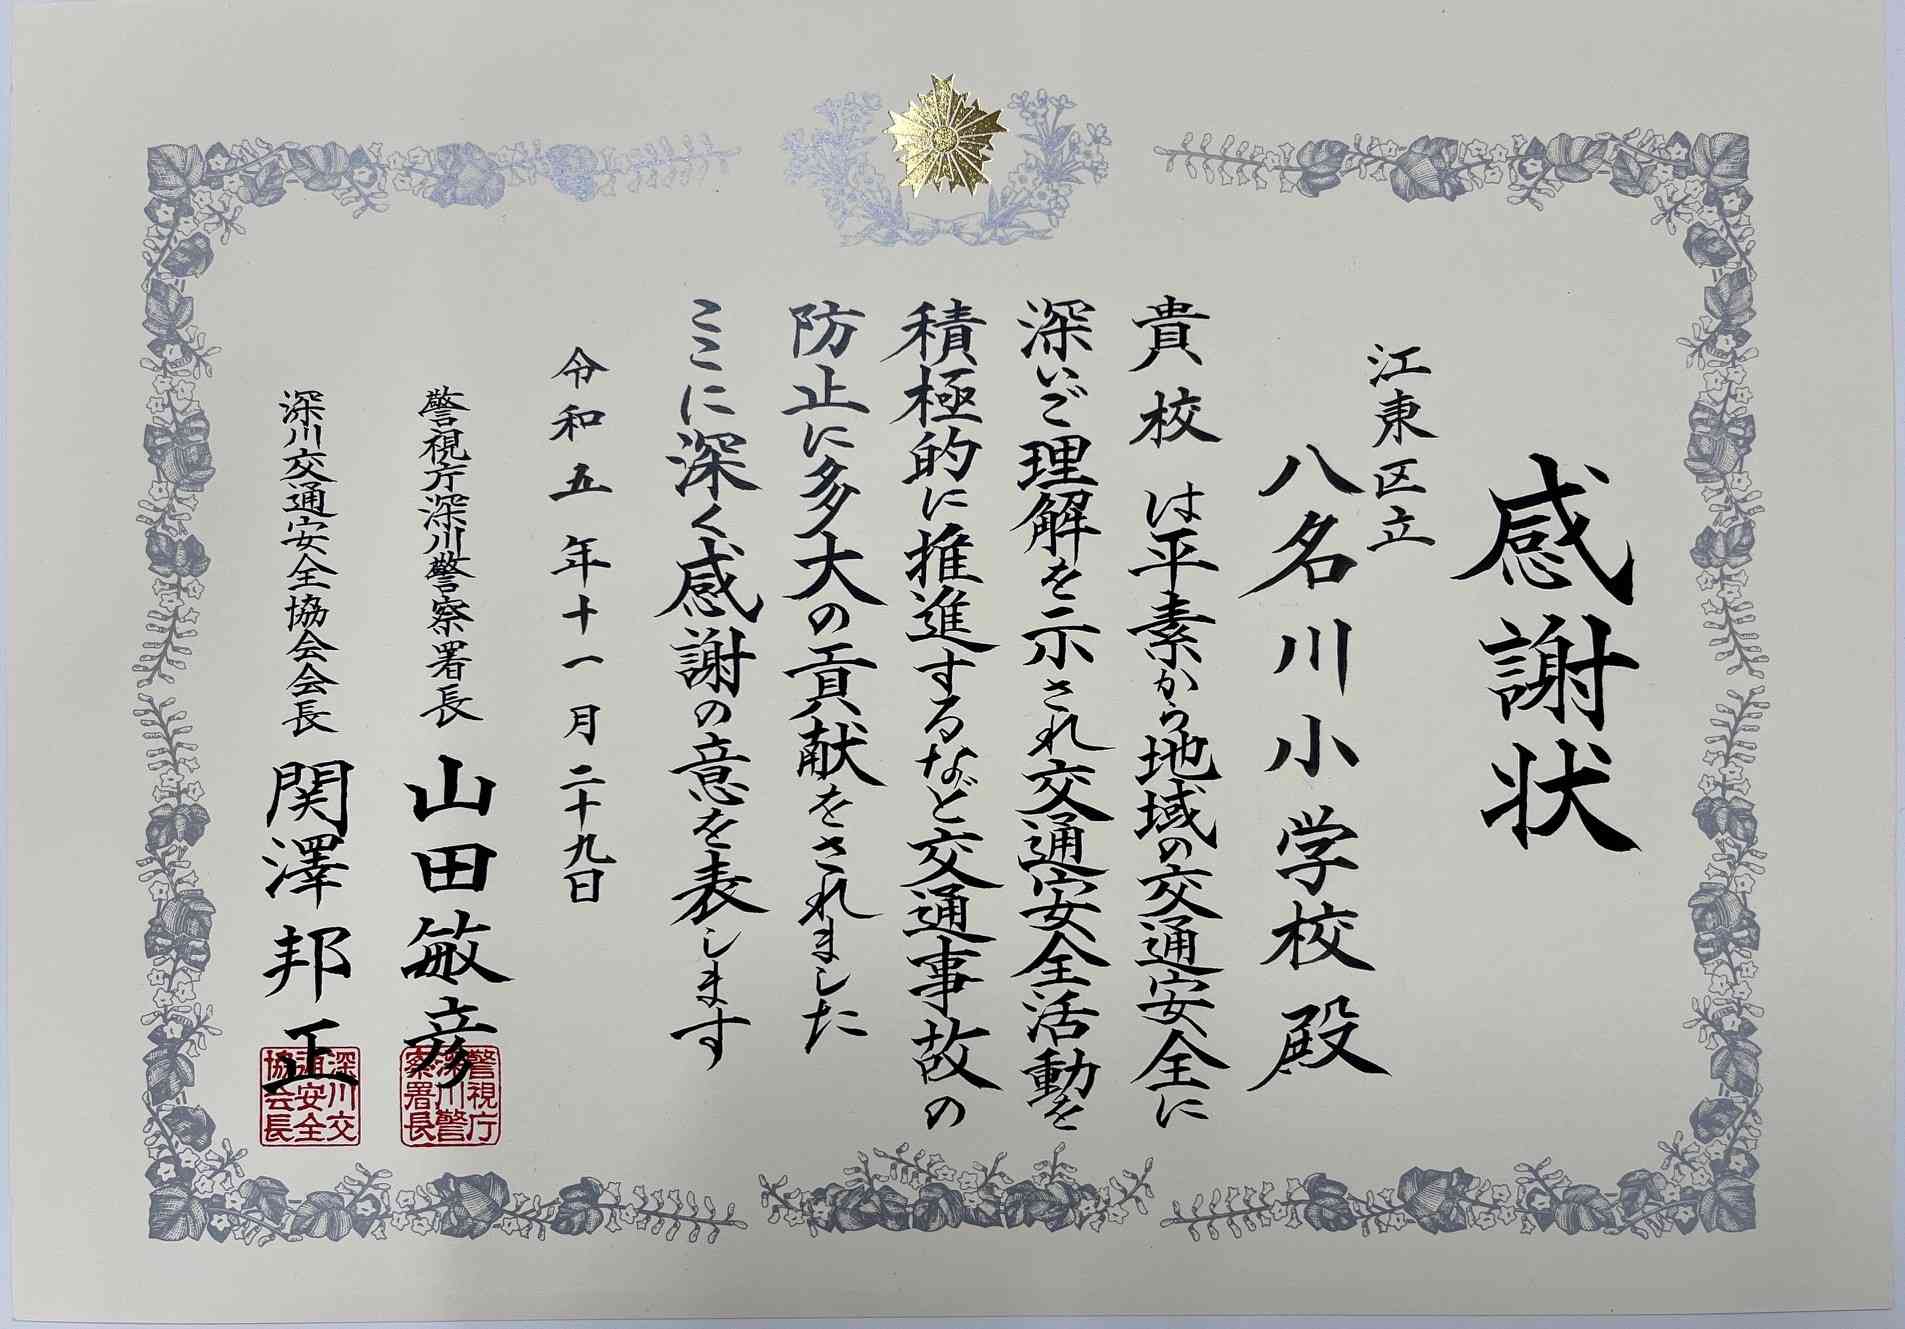 感謝状
江東区立
八名川小学校殿
貴校は平素から地域の交通安全に
深いご理解を示され交通安全活動を
積極的に推進するなど交通事故の
防止に多大の貢献をされました
ここに深く感謝の意を表します
令和五年十一月二十九日
警視庁深川警察署長 山田敏彦
警視庁深川警察署長
深川交通安全協会会長 関澤邦正
深川交通安全協会会長